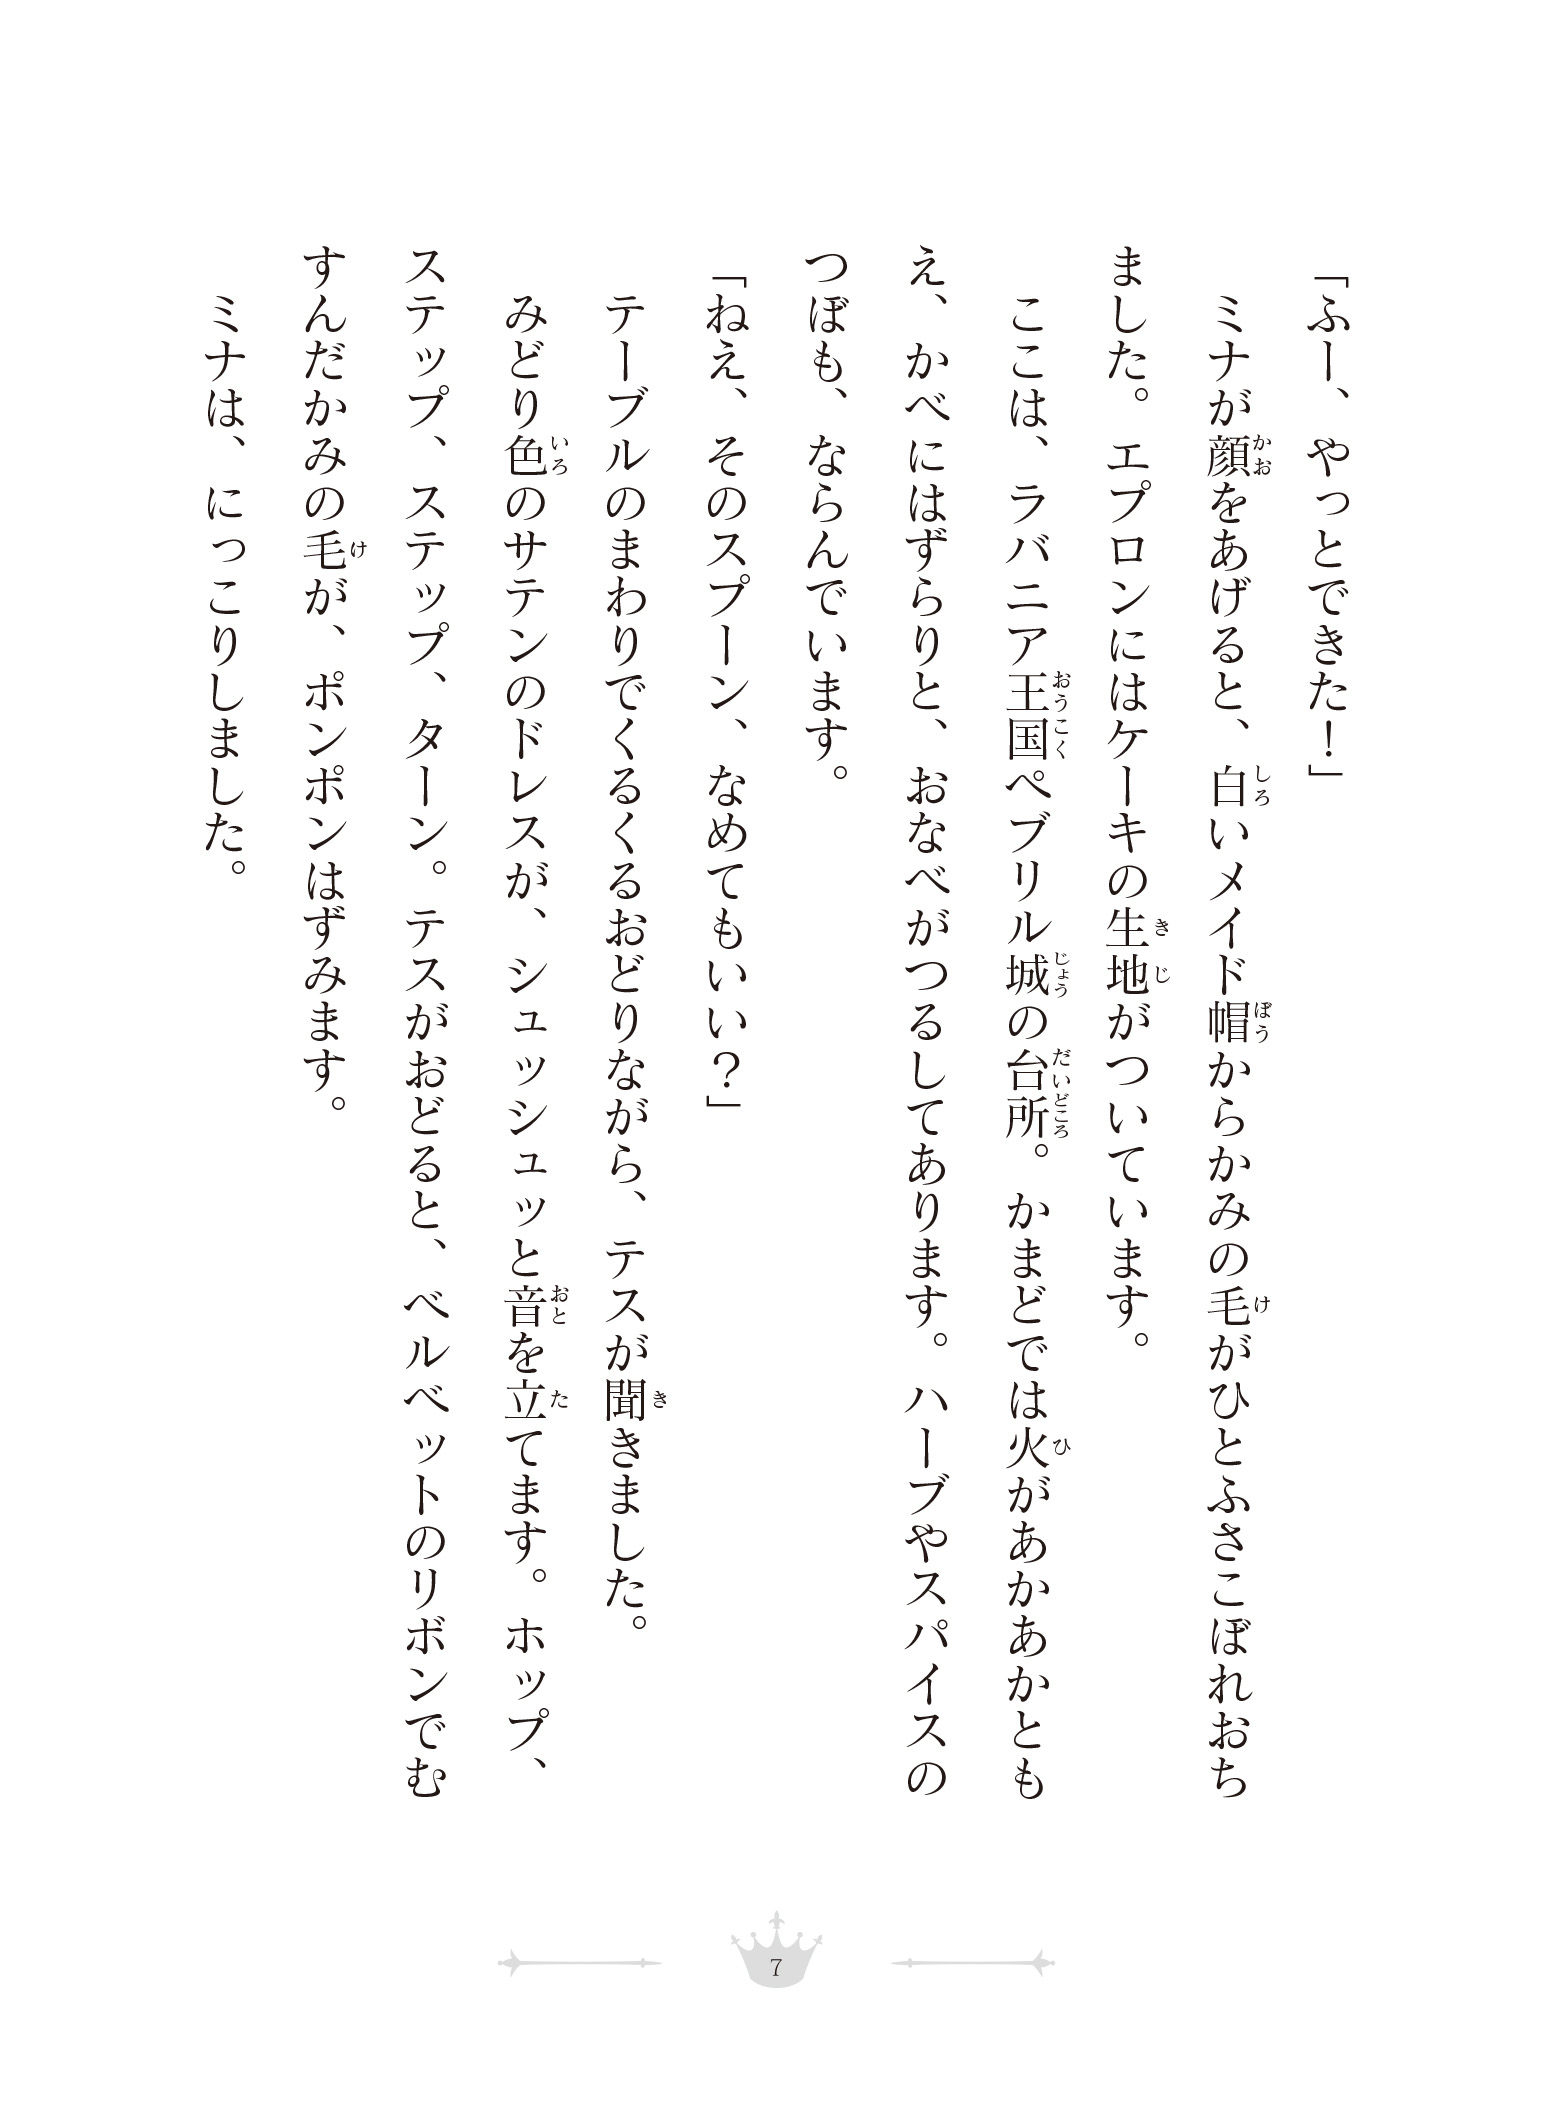 「ふー、やっとできた！」
ミナが顔をあげると、白いメイド帽からかみの毛がひとふさこぼれおち
ました。エプロンにはケーキの生地がついています。
ここは、ラバニア王国ペブリル城の台所。かまどでは火があかあかとも
え、かべにはずらりと、おなべがつるしてあります。ハーブやスパイスの
つぼも、ならんでいます。
「ねえ、そのスプーン、なめてもいい？」
テーブルのまわりでくるくるおどりながら、テスが聞きました。
みどり色のサテンのドレスが、シュッシュッと音を立てます。ホップ、
ステップ、ステップ、ターン。テスがおどると、ベルベットのリボンでむ
すんだかみの毛が、ポンポンはずみます。
ミナは、にっこりしました。
7